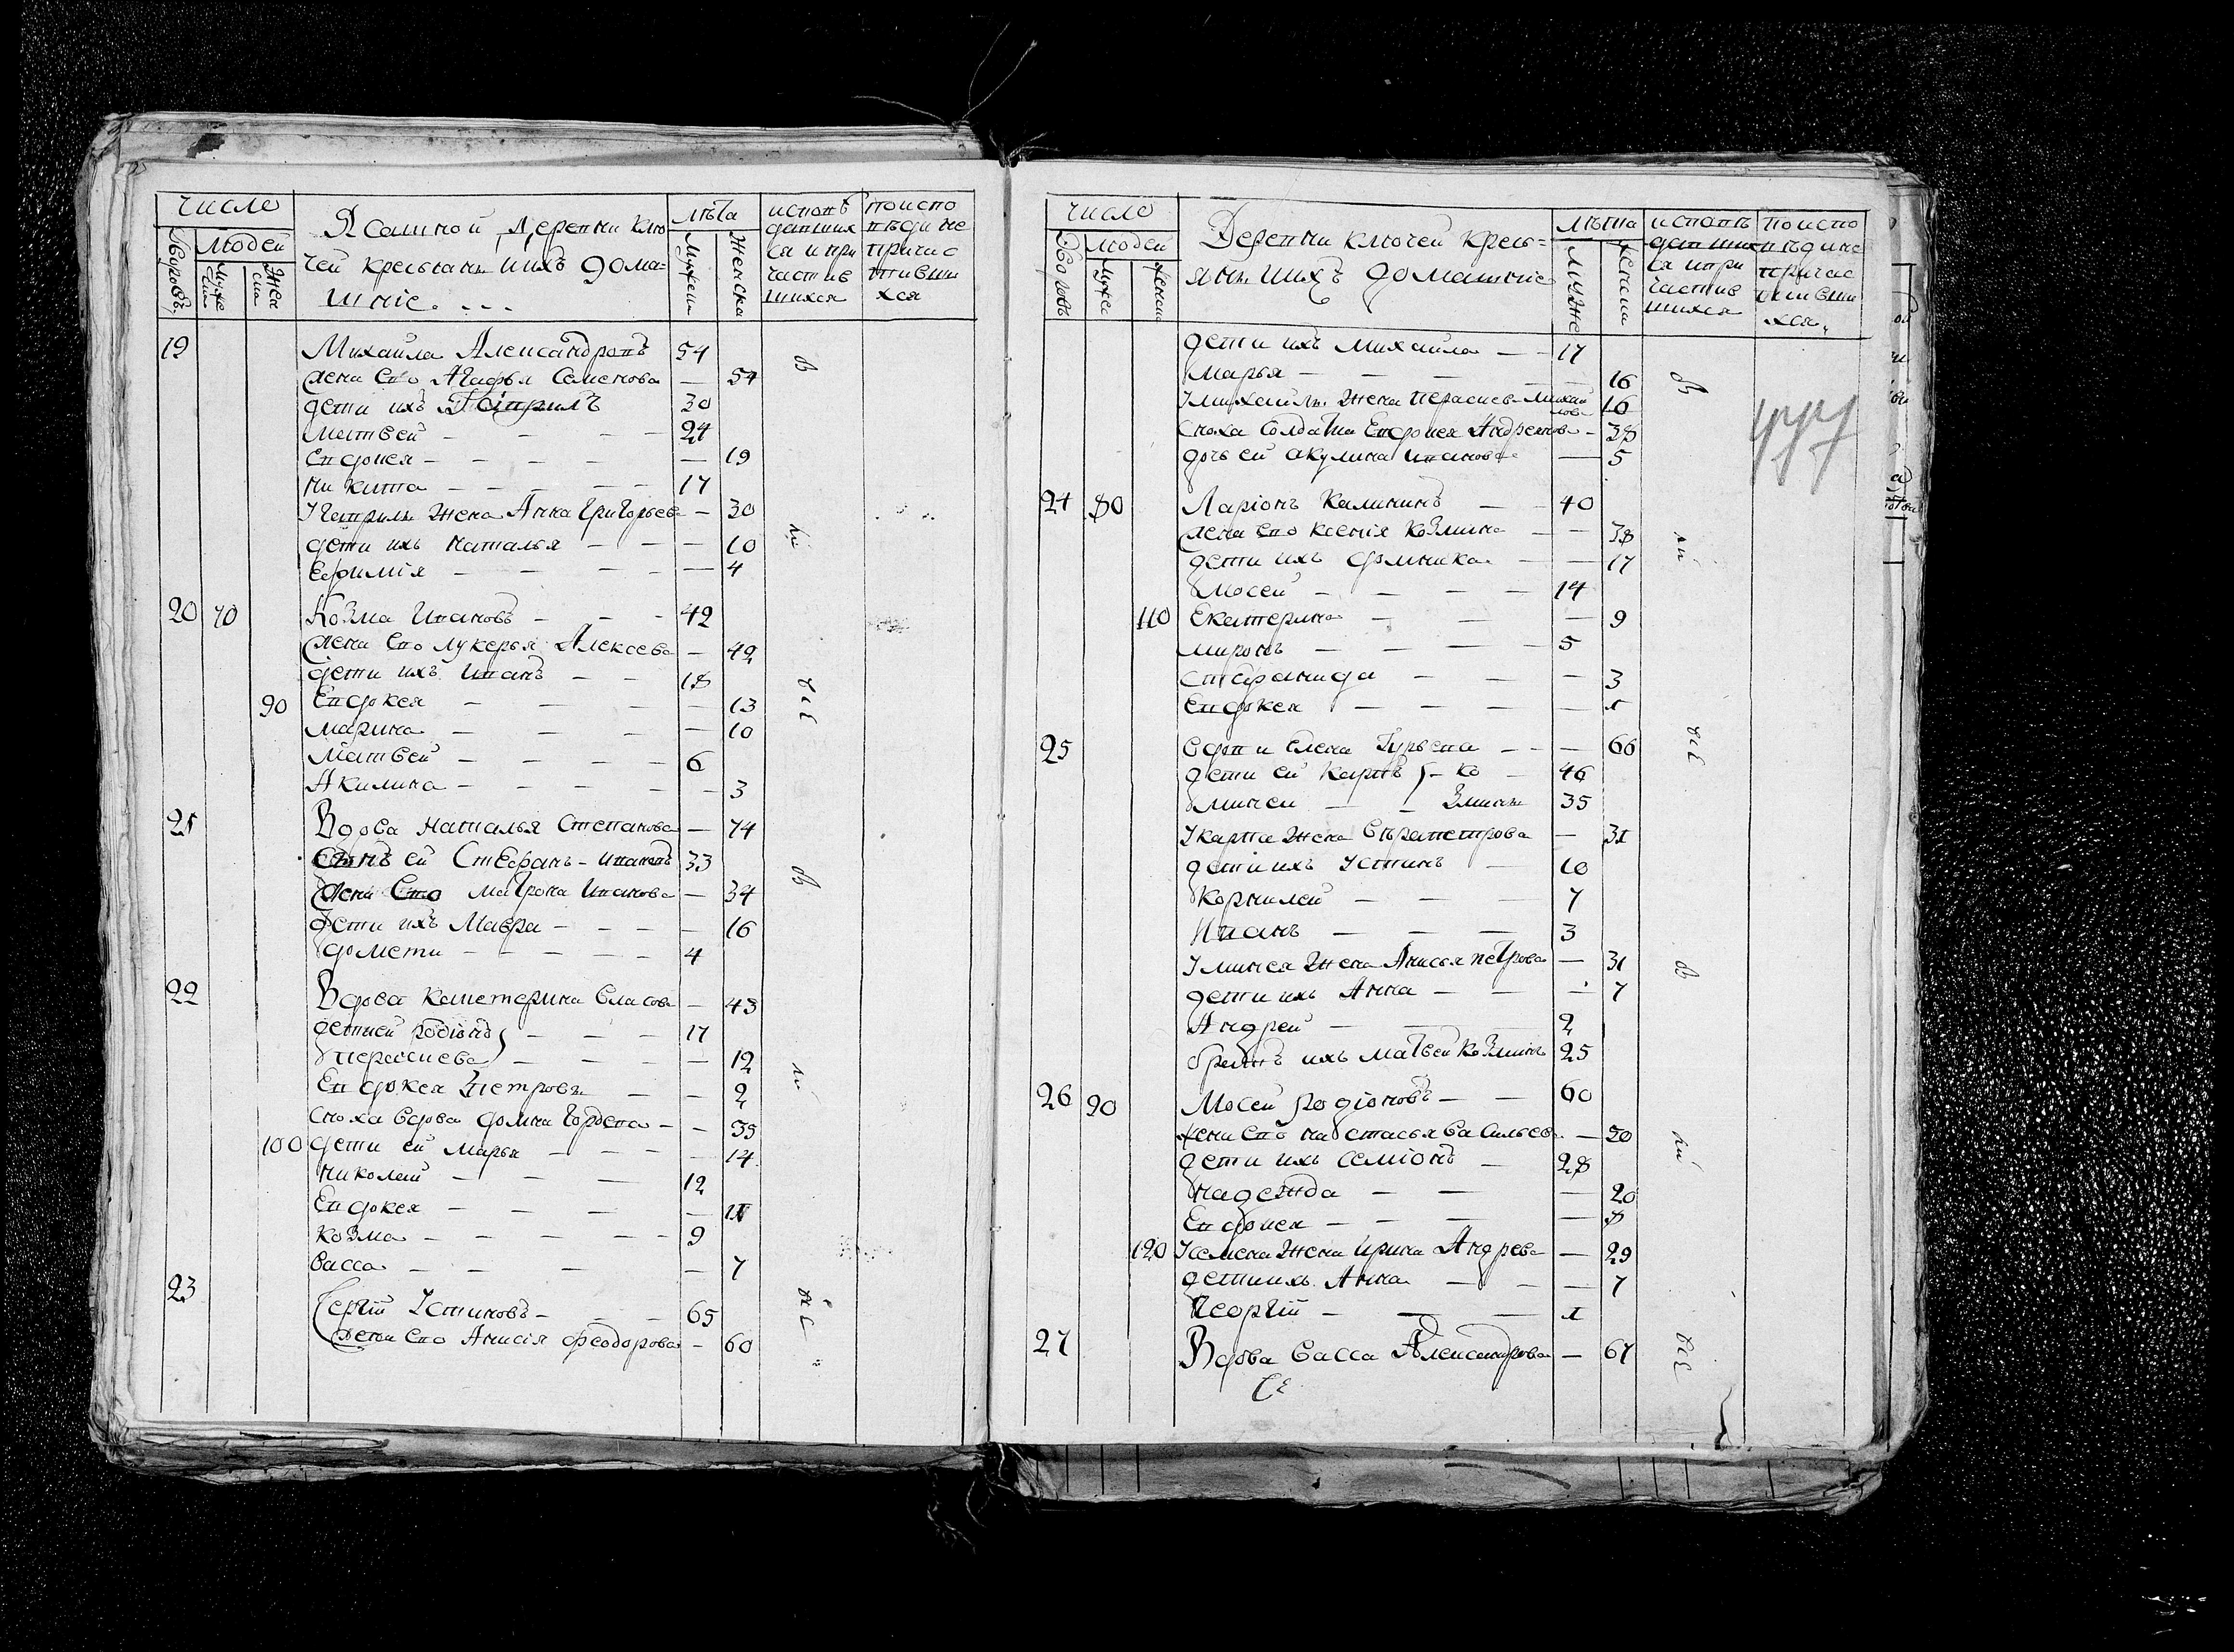 число
Ясашной Деревни Клю
чей крестьянъ и ихъ дома-
шние. - - -
лѣта
исповѣ
давших
ся и при
частив
шихся
по испо
вѣди не
причас
тивши
хся
Дворовъ
людей
муже
жен
мужеи
женска
19 Михаила Александровъ 54
жена Ево Агафья Семенова — 54
дети ихъ Гаврилъ 30
Матвей - - - 24
Евдокея - - - - — 19
Никита - - - - 17
У Гаврилы жена Анна Григорьева - 30
дети ихъ Наталья - - - 10
Ефимия - - - - — 4
20 70 Козма Ивановъ - - - 42
жена Ево лукерья Алексеева - 42
дети ихъ Иванъ - - 18
90 Евдокея - - - - 13
Марина - - - - 10
Матвей - - - - 6
Акилина - - - - - 3
21 Вдова Наталья Степанова - 74
Сынъ ей Стефанъ - Ивановъ 33
жена Ево Матрона Иванова - 34
дети ихъ Мавра - - - - 16
Домети - - - - - 4
22 Вдова Катерина Власова - 43
дети ей Родионъ - - - 17
Парасковья - - - - 12
Евдокея Петрова - - 2
сноха вдова Домна Гордева - - 35
100 дети ей Марья - - - - 14
Николай - - - 12
Евдокея - - - - 11
Козма - - - - - 9
Васса - - - - 7
23 Сергий Устиновъ - - 65
жена Ево Анисия Феодорова - 60
в
ии
всѣ
в
ии
всѣ
число
Деревни ключей кресть=
янъ и ихъ домашние
лѣта
исповѣ
давших
ся и при
частив
шихся
по испо
вѣди не
причас
тивши
хся
Дворовъ
людей
муже
женска
муже
женска
дети ихъ Михаила - - 17
Марья - - - - - 16
У михайлы жена Парасковья Михайлова 16
сноха Солдатка Евдокея Андреянова - 38
дочь ей акулина Иванова - 5
24 80 Ларионъ Калининъ - - 40
жена Ево ксения Козмина - - 38
дети ихъ Домника - - 17
Мосей - - - - 14
110 Екатерина - - - 9
Миронъ - - - - 5
Стефанида - - - 3
Евдокея - - - - 1
25 вдова Елена Гурьева - - - 66
дети ей Карпъ } - ко - 46
Миней - - змины 35
У карпа жена Вера петрова - 31
дети ихъ Устинъ - 10
Корнилей - - - 7
Иванъ - - - 3
У минея жена Анисья петрова - 31
дети ихъ Анна - - - 7
Андрей - - 2
братъ ихъ Матвей Козминъ 25
26 90 Мосей Родионовъ - - 60
жена Ево настасья Васильева - 50
дети ихъ Семионъ - 28
Надежда - - - 20
Евдокея - - - - 8
120 У семена жена Ирина Андреева - 29
дети ихъ Анна - - - 7
Георгий - - - 1
27 Вдова Васса Александрова - 67
Се
в
ии
всѣ
в
ии
всѣ